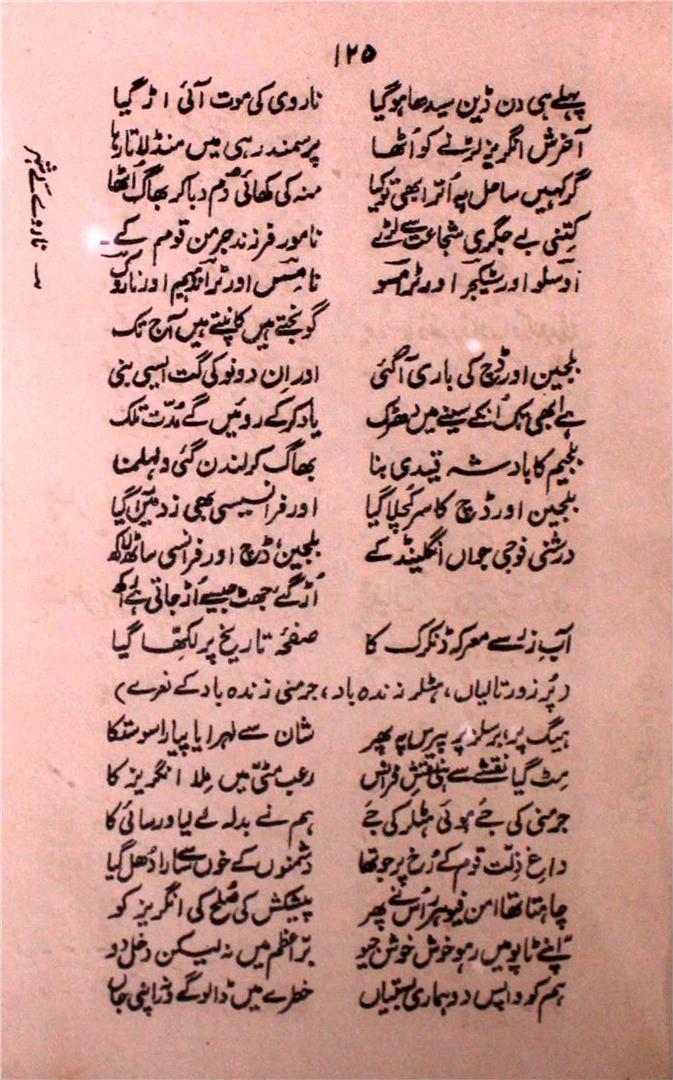 ۱۲۵
پہلے ہی دن ڈین سیدھا ہوگیا ناروی کی موت آئی اڑ گیا
آخرش انگریز لڑنے کو اُٹھا پر سمندر ہی میں منڈلاتا رہا
گر کہیں ساحل پہ اُترا بھی تو کیا منہ کی کھائی دُم دبا کر بھاگ اُٹھا
کتنی بے جگری شجاعت سے لڑے نامور فرزند جرمن قوم کے
اوسلو اور شیکجر اور ٹرمسو نامسس اور ٹرانڈہیم اور نارِوک
گونجتے ہیں کانپتے ہیں آج تک
بلجین اور ڈچ کی باری آ گئی اور اِن دونو کی گت ایسی بنی
ہے ابھی تک اُنکے سینے میں دھڑک یاد کرکے روئیں گے مُدّت تلک
بلجیم کا بادشہ قیدی بنا بھاگ کر لندن گئی ولہلمنا
بلجین اور ڈچ کا سر کُچلا گیا اور فرانسیسی بھی زد میں آ گیا
درشنی فوجی جواں انگلینڈ کے بلجین، ڈچ اور فرانسی ساٹھ لاکھ
اُڑ گے جھٹ جیسے اُڑ جاتی ہے راکھ
آبِ زر سے معرکہ ڈنکرک کا صفحۂ تاریخ پر لکھّا گیا
(پُر زور تالیاں، ہٹلر زندہ باد، جرمنی زندہ باد کے نعرے)
ہیگ پر، برسلز پر پیرس پہ پھر شان سے لہرایا پیارا سوستکا
مِٹ گیا نقشے سے ہی نقشِ فرانس رعب مٹی میں مِلا انگریز کا
جرمنی کی جَے ہوئی ہٹلر کی جَے ہم نے بدلہ لے لیا ورسائی کا
داغِ ذِلّت قوم کے رُخ پر جو تھا دشمنوں کے خوں سے سارا دُھل گیا
چاہتا تھا امن فیوہرر اُس نے پھر پیشکش کی صُلح کی انگریز کو
اپنے ٹاپو میں رہو خوش خوش جیو برِّ اعظم میں نہ لیکن دخل دو
ہم کو واپس دو ہماری بستیاں خطرے میں ڈالوگے ورنہ اپنی جاں
ے ناروے کے شہر